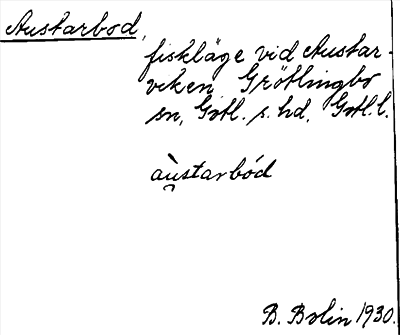 Austarbod,
fiskläge vid Austar-
viken Grötlingbo
sn, Gotl. s. hd, Gotl. l.
aù̯starbód
B. Bolin 1930.